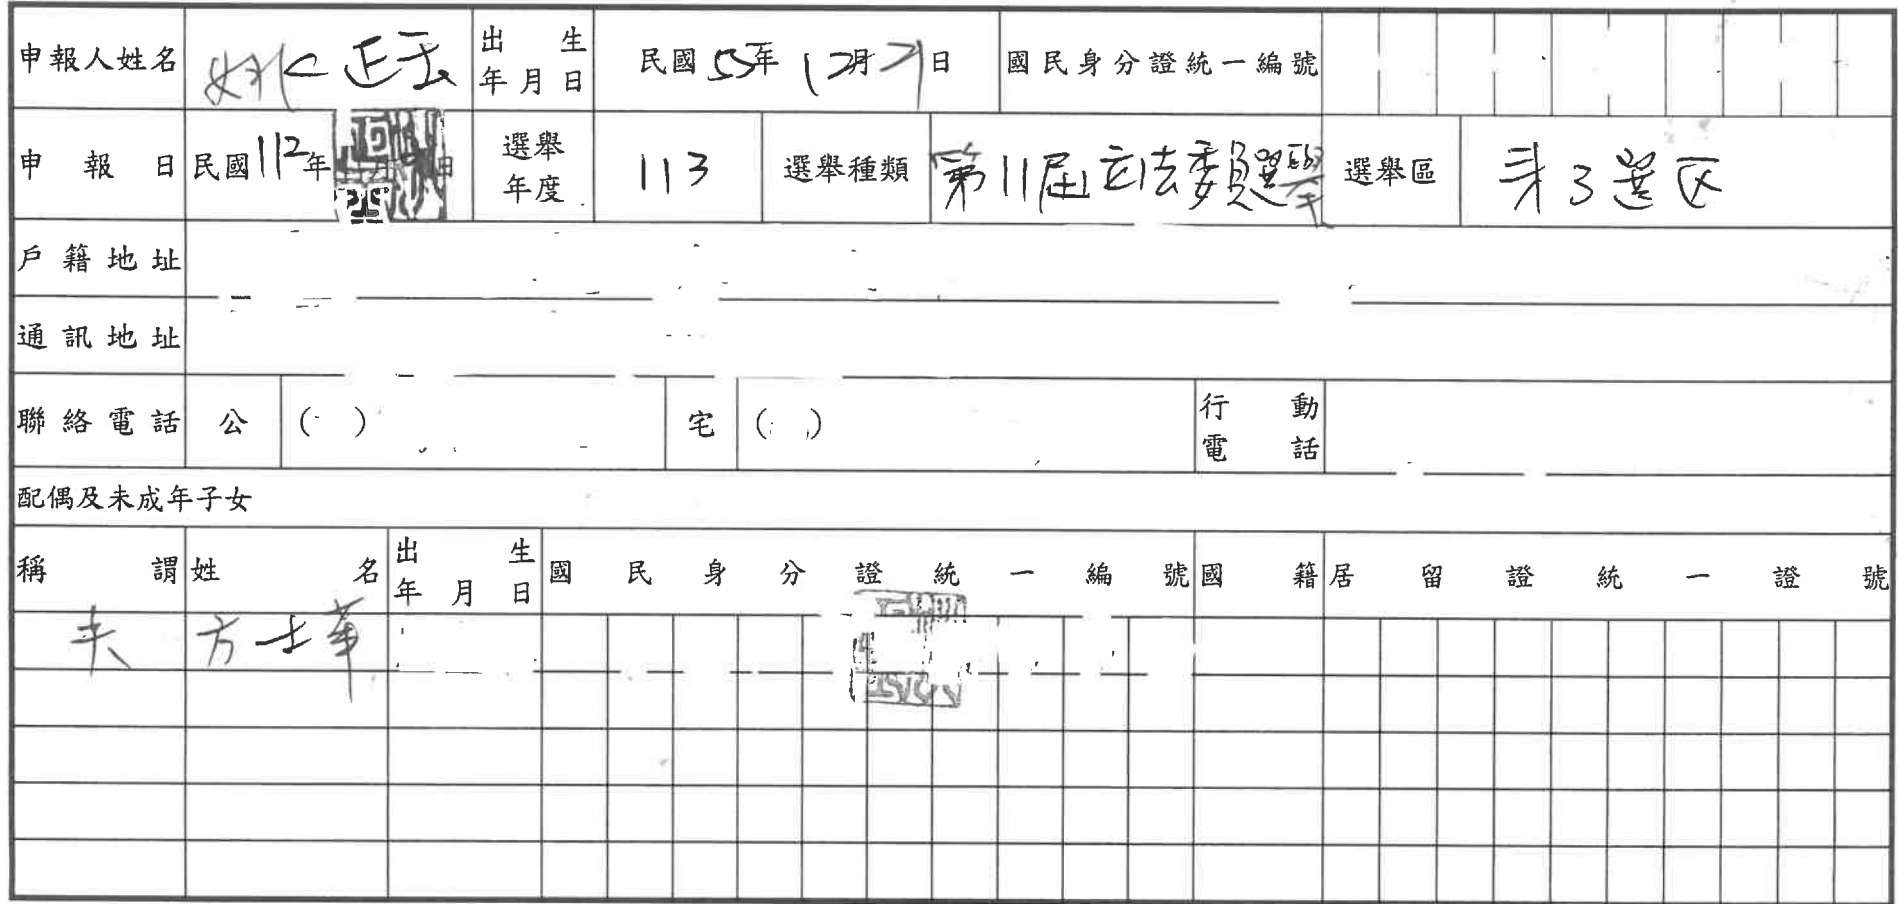 申報人姓名 姚正玉 出生年月日 民國55年12月21日 國民身分證統一編號
申報日 民國112年 月 日 選舉年度 113 選舉種類 第11屆立法委員選舉 選舉區 第3選区
戶籍地址
通訊地址
聯絡電話 公 ( ) 宅 ( ) 行動電話
配偶及未成年子女
稱謂 姓名 出生年月日 國民身分證統一編號 國籍 居留證統一證號
夫 方士華